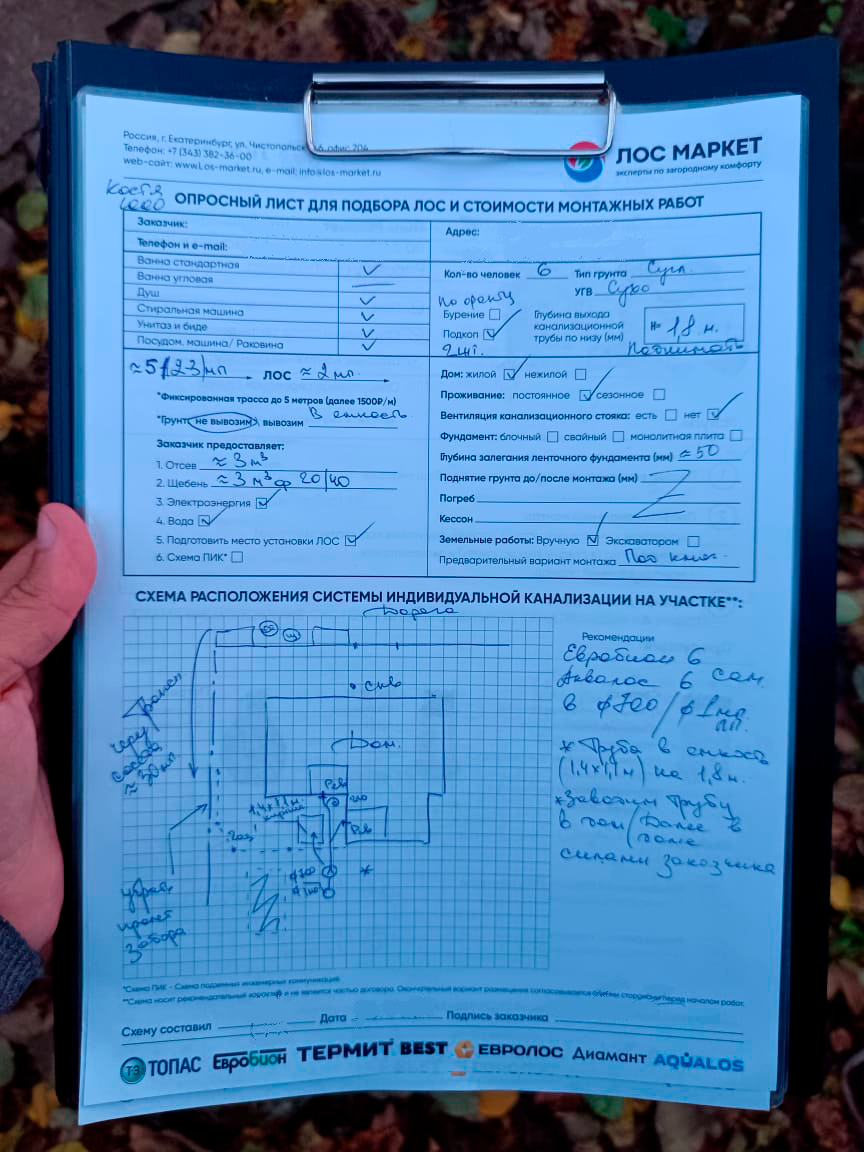 Россия, г. Екатеринбург, ул. Чистопольск офис 204
Телефон: +7 (343) 382-36-00
web-сайт: www.Los-market.ru, e-mail: info@los-market.ru
ЛОС МАРКЕТ
эксперты по загородному комфорту
Костя
1000
ОПРОСНЫЙ ЛИСТ ДЛЯ ПОДБОРА ЛОС И СТОИМОСТИ МОНТАЖНЫХ РАБОТ
Заказчик:
Телефон и e-mail:
Адрес:
Ванна стандартная
Ванна угловая
Душ
Стиральная машина
Унитаз и биде
Посудом. машина/ Раковина
Кол-во человек 6 Тип грунта Сугл.
УГВ Сухо
По факту
Бурение
Подкоп
2шт.
Глубина выхода
канализационной
трубы по низу (мм)
1,8 м.
Поднимать
≈5/2-3/мп ЛОС ≈2мп
*Фиксированная трасса до 5 метров (далее 1500₽/м)
*Грунт не вывозим, вывозим В емкость
Заказчик предоставляет:
1. Отсев ≈ 3 м³
2. Щебень ≈ 3 м³ ф 20/40
3. Электроэнергия
4. Вода
5. Подготовить место установки ЛОС
6. Схема ПИК*
Дом: жилой нежилой
Проживание: постоянное сезонное
Вентиляция канализационного стояка: есть нет
Фундамент: блочный свайный монолитная плита
Глубина залегания ленточного фундамента (мм) ≈50
Поднятие грунта до/после монтажа (мм)
Погреб
Кессон
Земельные работы: Вручную Экскаватором
Предварительный вариант монтажа Под ключ
СХЕМА РАСПОЛОЖЕНИЯ СИСТЕМЫ ИНДИВИДУАЛЬНОЙ КАНАЛИЗАЦИИ НА УЧАСТКЕ**:
Дорога
от
щ
скв
Дом.
1,4х1,1м.
Газ
через
соседа
≈ 30мп
забора
Рекомендации
Евробион 6
Аквалос 6 сам.
в ф700/ф1мп
* Труба в емкость
(1,4х1,1м) на 1,8м.
*Заводим трубу
в дом/Далее в
доме
силами заказчика
*Схема ПИК - Схема подземных инженерных коммуникаций
**Схема носит рекомендательный характер и не является частью договора. Окончательный вариант размещения согласовывается обеими сторонами перед началом работ.
Схему составил Дата Подпись заказчика
ТОПАС Евробион ТЕРМИТ BEST ЕВРОЛОС Диамант AQUALOS